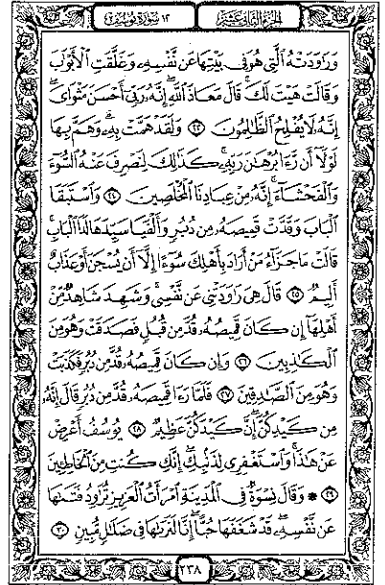 الجزء الثاني عشر ١٢ سورة يوسف
وَرَاوَدَتْهُ الَّتِي هُوَ فِي بَيْتِهَا عَن نَّفْسِهِ وَغَلَّقَتِ الْأَبْوَابَ
وَقَالَتْ هَيْتَ لَكَ ۚ قَالَ مَعَاذَ اللَّهِ ۖ إِنَّهُ رَبِّي أَحْسَنَ مَثْوَايَ ۖ
إِنَّهُ لَا يُفْلِحُ الظَّالِمُونَ ٢٣ وَلَقَدْ هَمَّتْ بِهِ ۖ وَهَمَّ بِهَا
لَوْلَا أَن رَّءَا بُرْهَانَ رَبِّهِ ۚ كَذَٰلِكَ لِنَصْرِفَ عَنْهُ السُّوءَ
وَالْفَحْشَاءَ ۚ إِنَّهُ مِنْ عِبَادِنَا الْمُخْلَصِينَ ٢٤ وَاسْتَبَقَا
الْبَابَ وَقَدَّتْ قَمِيصَهُ مِن دُبُرٍ وَأَلْفَيَا سَيِّدَهَا لَدَا الْبَابِ ۚ
قَالَتْ مَا جَزَاءُ مَنْ أَرَادَ بِأَهْلِكَ سُوءًا إِلَّا أَن يُسْجَنَ أَوْ عَذَابٌ
أَلِيمٌ ٢٥ قَالَ هِيَ رَاوَدَتْنِي عَن نَّفْسِي ۚ وَشَهِدَ شَاهِدٌ مِّنْ
أَهْلِهَا إِن كَانَ قَمِيصُهُ قُدَّ مِن قُبُلٍ فَصَدَقَتْ وَهُوَ مِنَ
الْكَاذِبِينَ ٢٦ وَإِن كَانَ قَمِيصُهُ قُدَّ مِن دُبُرٍ فَكَذَبَتْ
وَهُوَ مِنَ الصَّادِقِينَ ٢٧ فَلَمَّا رَءَا قَمِيصَهُ قُدَّ مِن دُبُرٍ قَالَ إِنَّهُ
مِن كَيْدِكُنَّ ۖ إِنَّ كَيْدَكُنَّ عَظِيمٌ ٢٨ يُوسُفُ أَعْرِضْ
عَنْ هَٰذَا ۚ وَاسْتَغْفِرِي لِذَنبِكِ ۖ إِنَّكِ كُنتِ مِنَ الْخَاطِئِينَ
٢٩ ۞ وَقَالَ نِسْوَةٌ فِي الْمَدِينَةِ امْرَأَتُ الْعَزِيزِ تُرَاوِدُ فَتَاهَا
عَن نَّفْسِهِ ۖ قَدْ شَغَفَهَا حُبًّا ۖ إِنَّا لَنَرَاهَا فِي ضَلَالٍ مُّبِينٍ ٣٠
٢٣٨